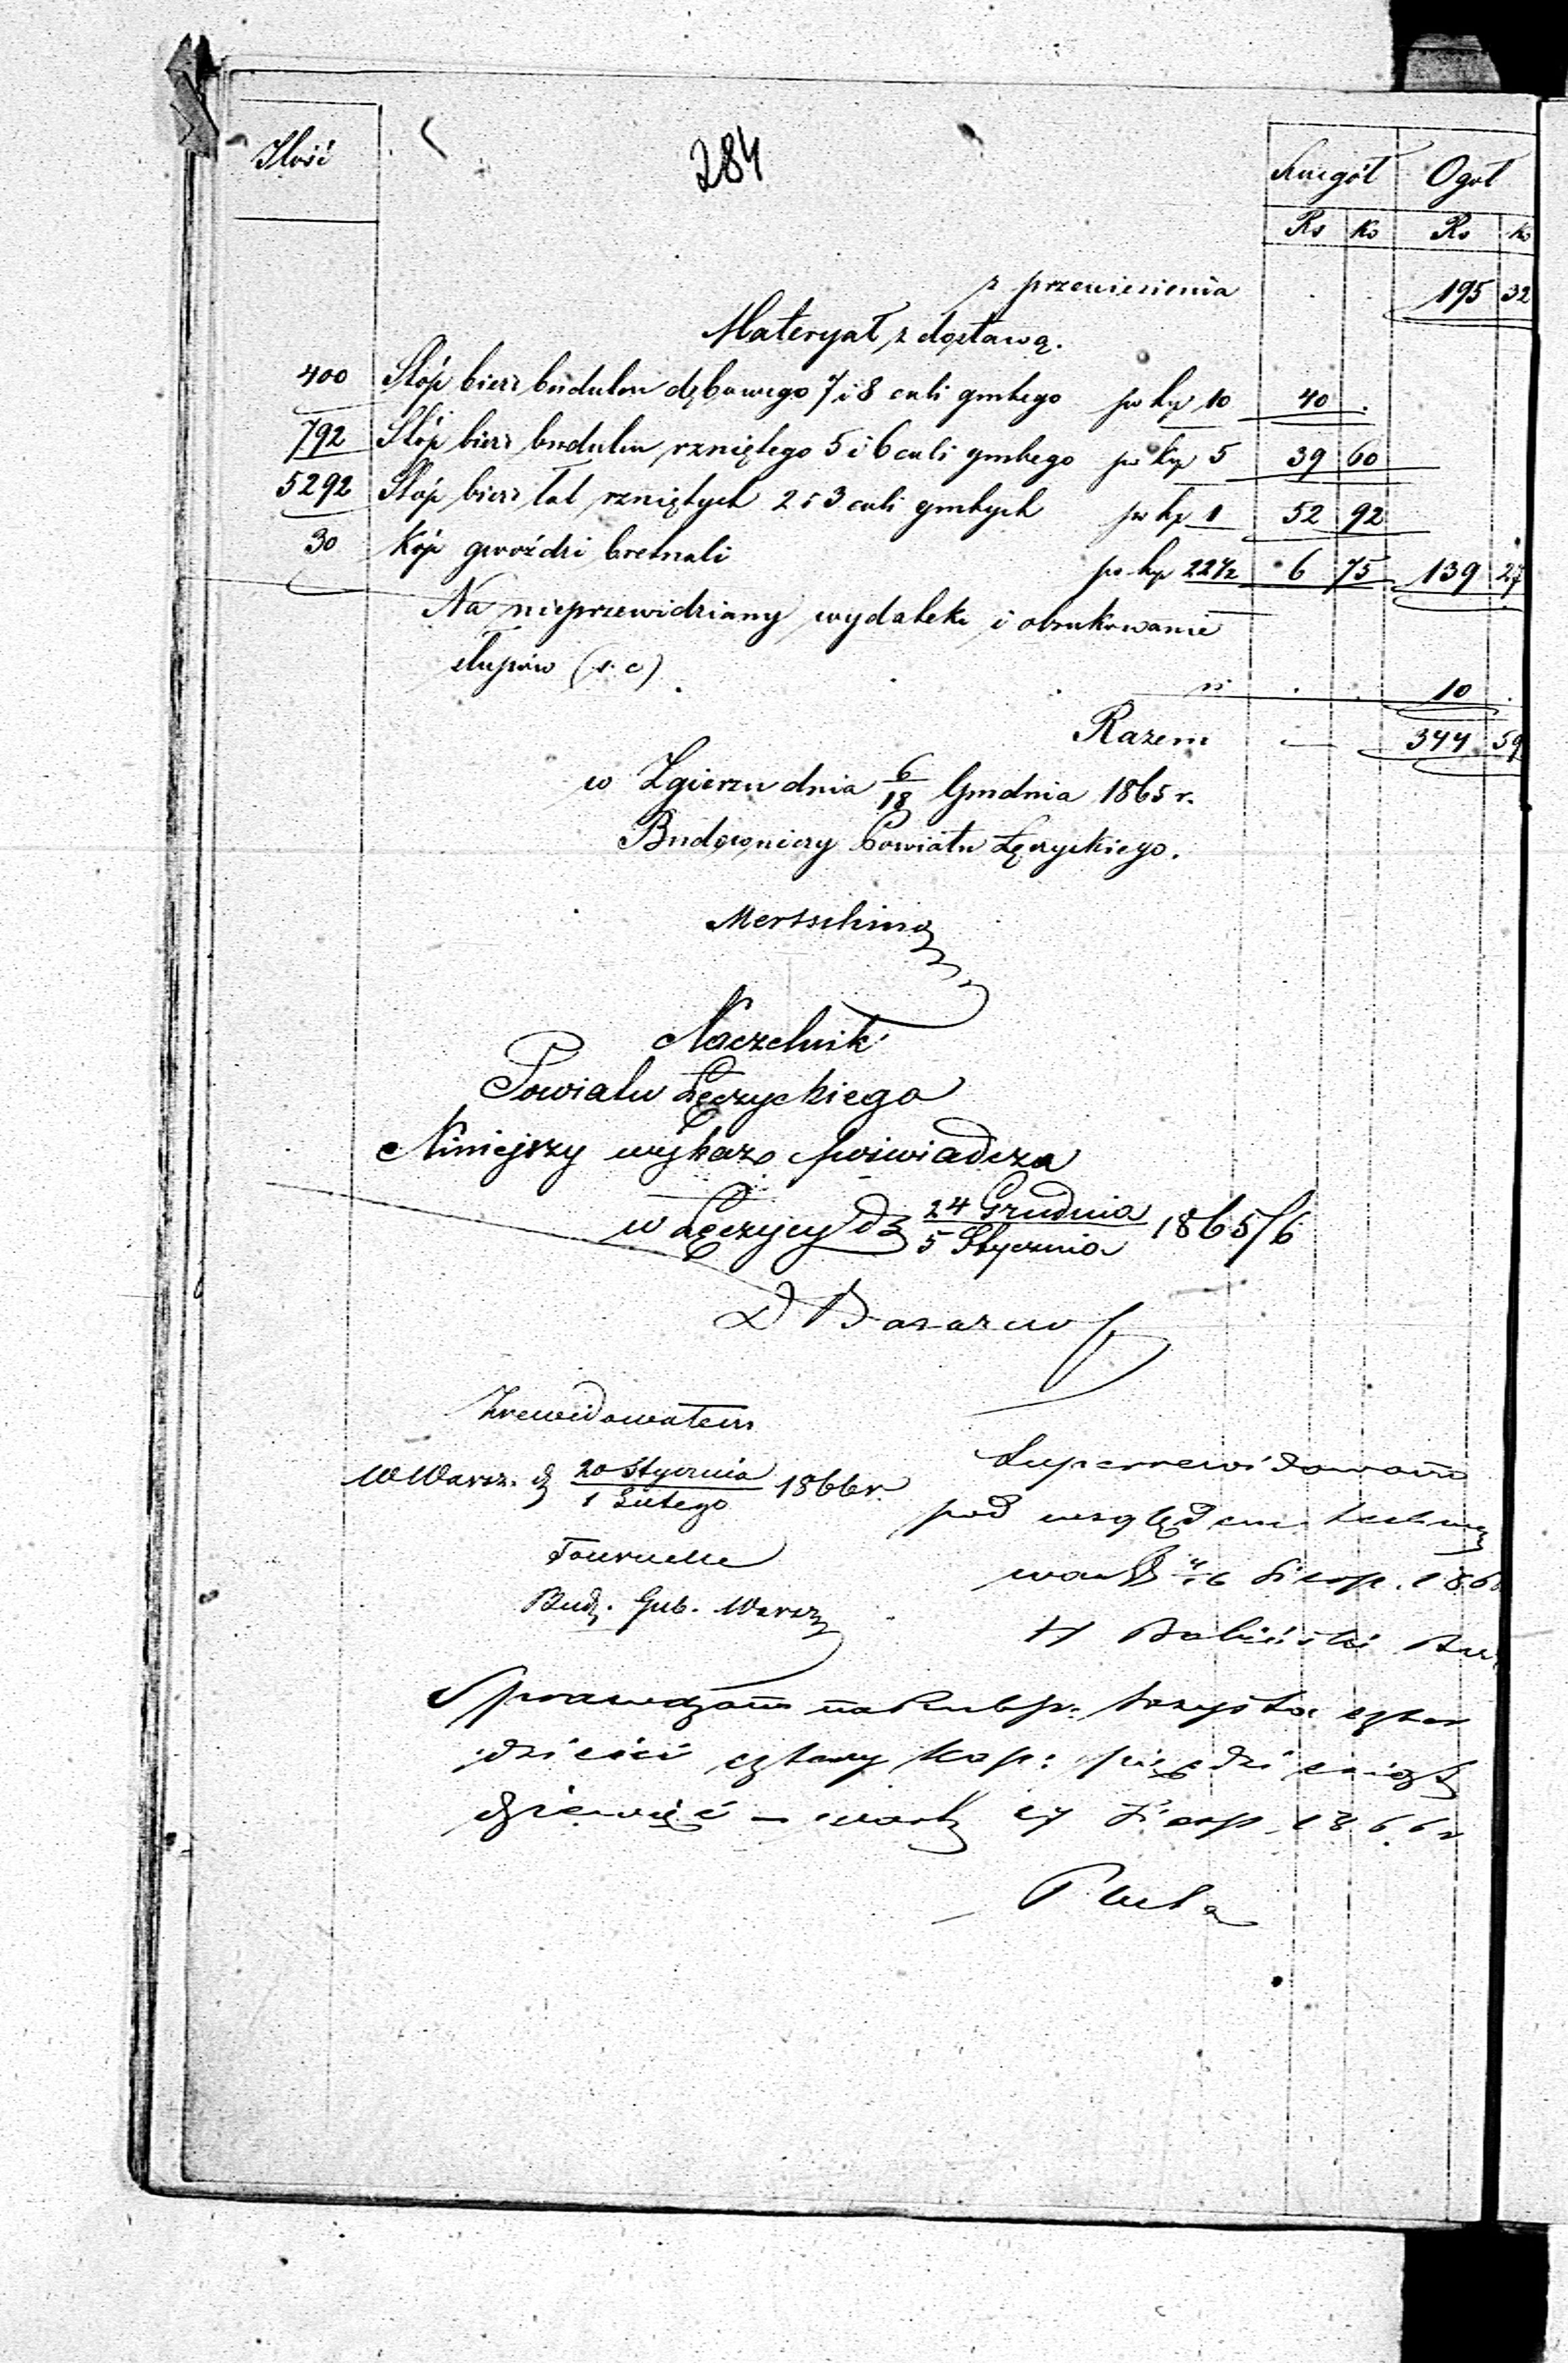 284
Ilość Szczegół Ogół
Rs Ko Rs Ko
z przeniesienia 195 32
Materyał z dostawą.
400 Stóp bież budulcu dębowego 7 i 8 cali grubego po kp 10 40 .
792 Stóp bież budulcu rzniętego 5 i 6 cali grubego po kp 5 39 60
5292 Stóp bież łat rzniętych 2 i 3 cali grubych po kp 1 52 92
30 Kóp gwoździ bretnali po kp 22 1/2 6 75 139 27
Na nieprzewidziany wydatek i obrukowanie
słupów (s. c) 10 .
Razem 344 59
w Zgierzu dnia 6/18 Grudnia 1865 r.
Budowniczy Powiatu Łęczyckiego.
Mertsching
Naczelnik
Powiatu Łęczyckiego
Niniejszy wykaz poświadcza
w Łęczycy d 24 Grudnia/5 Stycznia 1865/6
Zrewidowałem
W Warsz. d 20 Stycznia/1 Lutego 1866 r.
Tournelle
Bud. Gub. Warsz
Superrewidowano
pod względem techn
H Baliński
Sprawdzono na Rubsr. trzysta czter
dzieści cztery kop: pięćdziesiąt
dziewięć – 17 Sierp. 1866 r